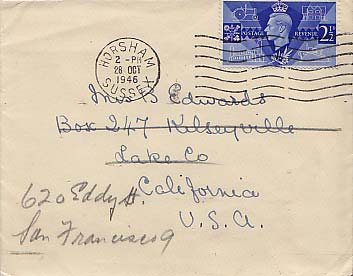 HORSHAM
2 - PM
28 OCT
1946
SUSSEX
POSTAGE REVENUE
2½
Mrs B Edwards
Box 247 Kelseyville
Lake Co
California
U.S.A.
620 Eddy St.
San Francisco 9